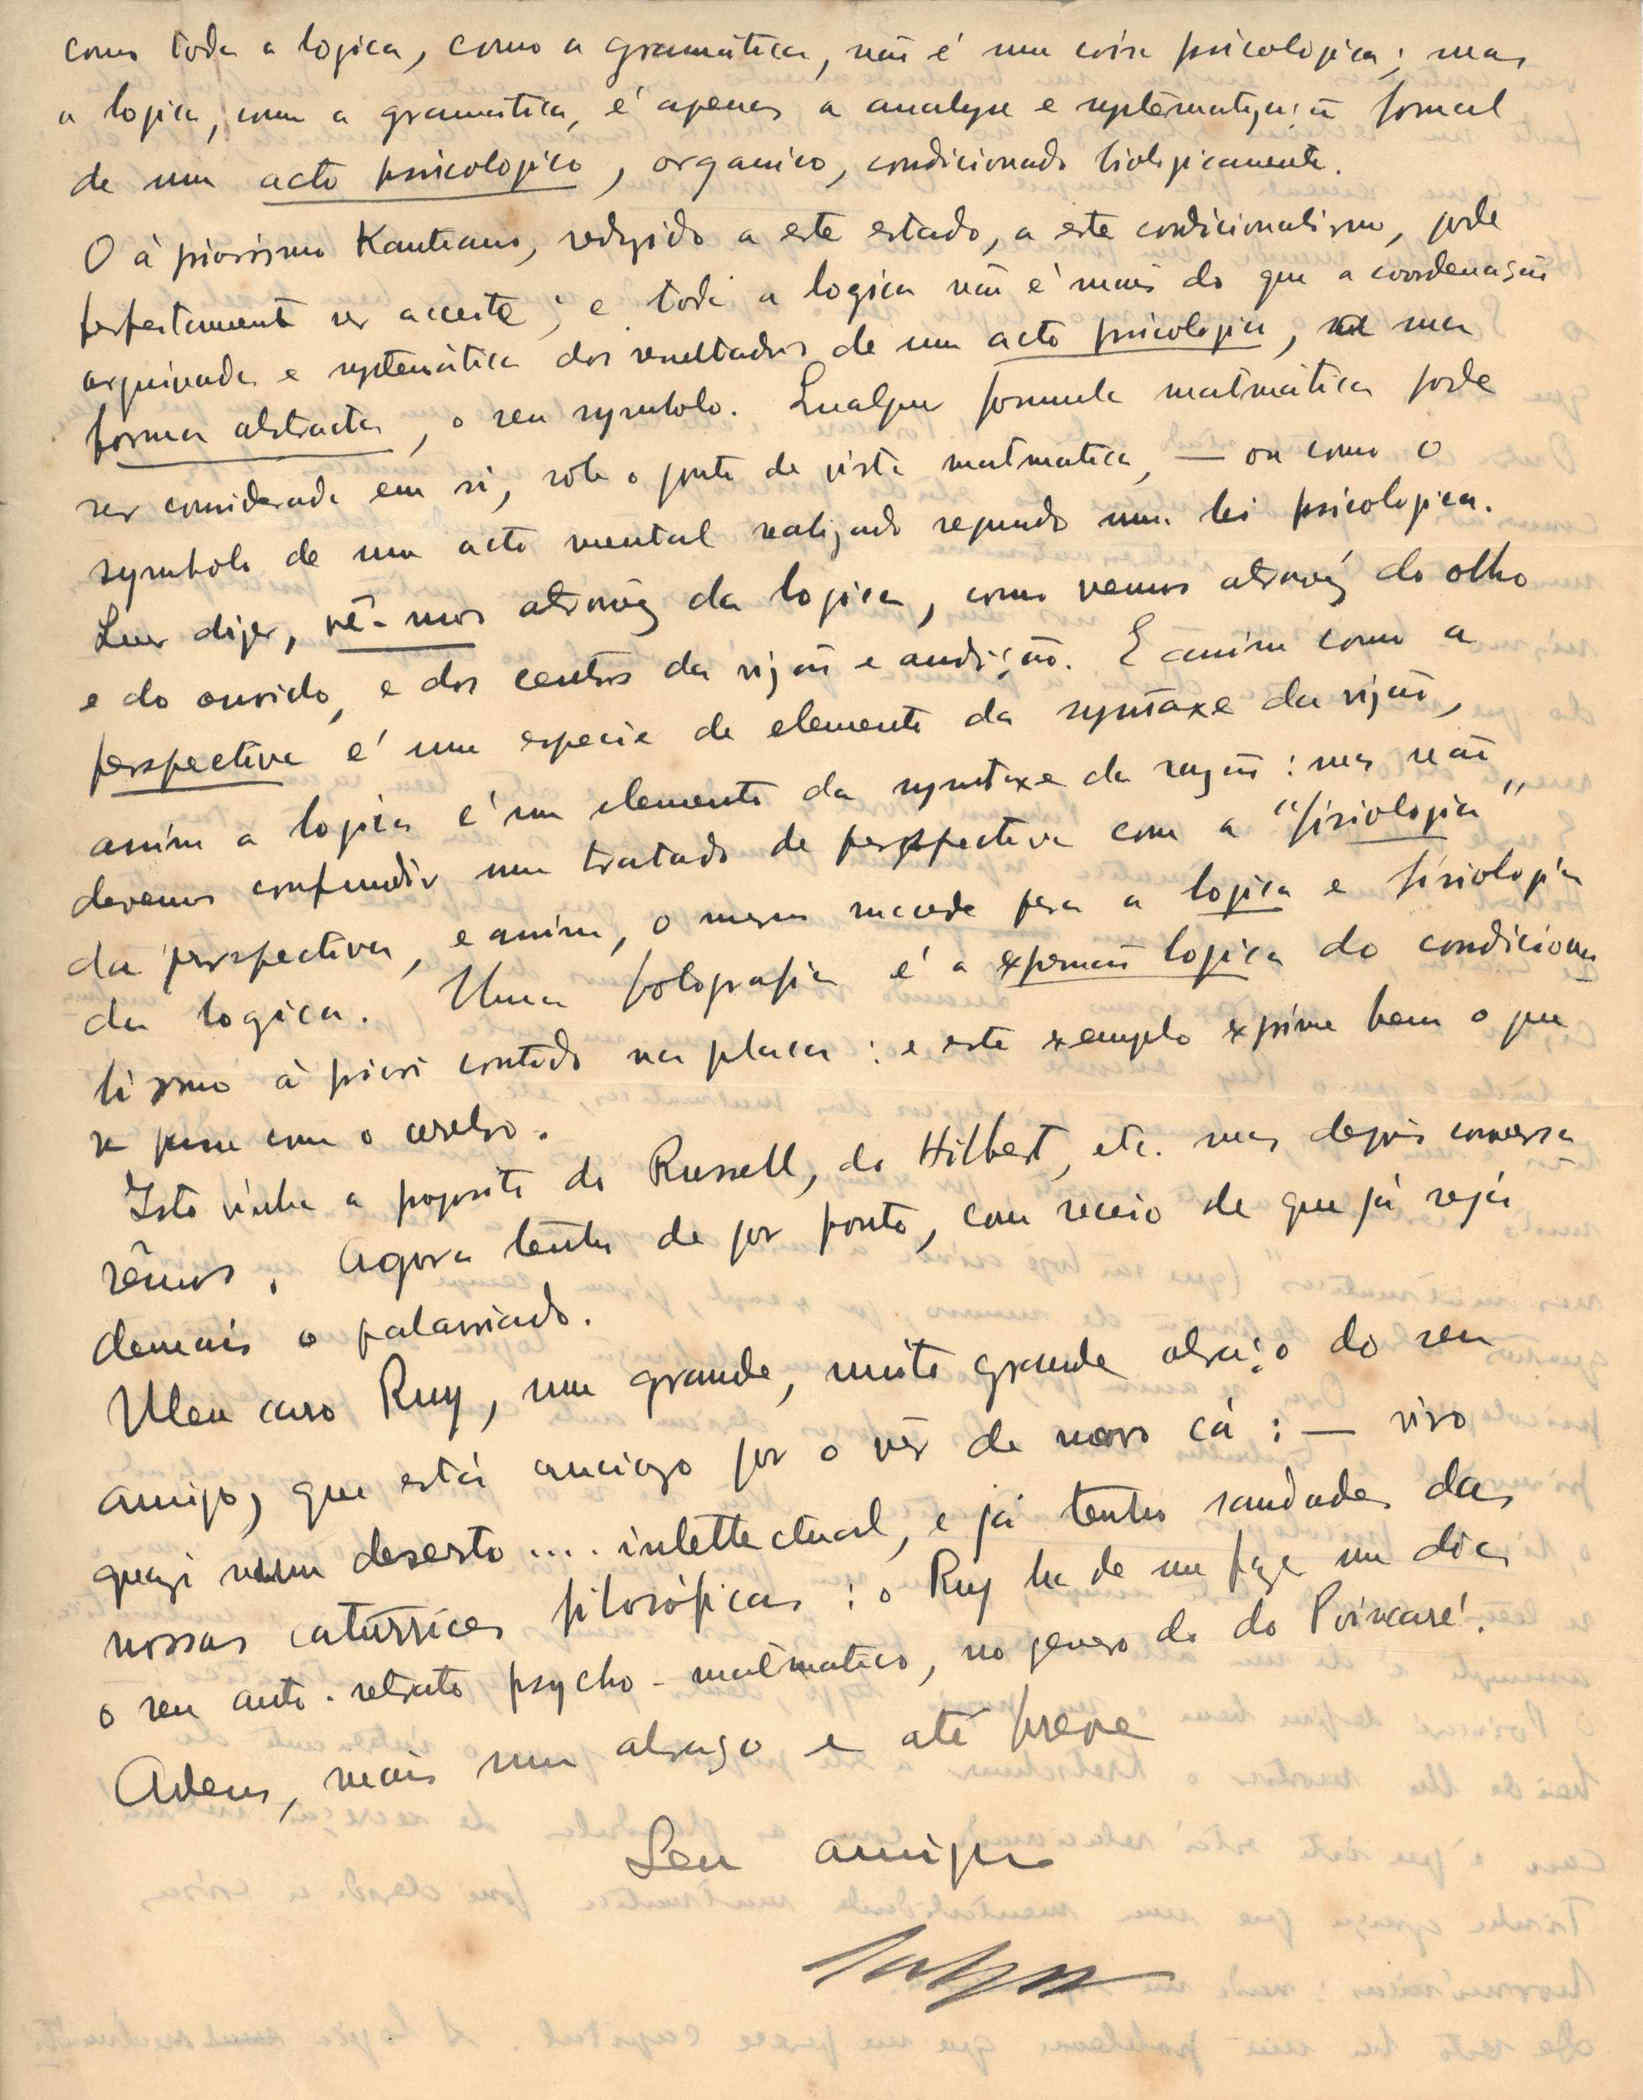 como toda a logica, como a gramática, não é uma coisa psicologica; mas
a logica, como a gramática, é apenas a analyse e systematização formal
de um acto psicologico, organico, condicionado biologicamente.
O à priorismo Kanteano, reduzido a este estado, a este condicionalismo, pode
perfeitamente ser acceite; e toda a logica não é mais do que a coordenação
arquivada e systemática dos resultados de um acto psicologico, na sua
forma abstracta, o seu symbolo. Qualquer formula matmática pode
ser considerada em si, sob o ponto de vista matmatica, — ou como o
symbolo de um acto mental realizado segundo uma lei psicologica.
Quer dizer, vê-mos atravéz da logica, como vemos atravéz do olho
e do ouvido, e dos centros da vizão e audição. E assim como a
perspectiva é uma especie de elemento da syntaxe da vizão,
assim a logica é um elemento da syntaxe da razão: mas não
devemos confundir um tratado de perspectiva com a "fisiologia"
da perspectiva, e assim, o mesmo succede para a logica e fisiologia
da logica. Uma fotografia é a expressão logica do condiciona
lismo à priori contido na placa: e este exemplo exprime bem o que
se passa com o cerebro.
Isto vinha a proposito do Russell, do Hilbert, etc. mas depois conversa
rêmos. Agora tenho de por ponto, com receio de que já seja
demais o palavriado.
Meu caro Ruy, um grande, muito grande abraço do seu
amigo, que está ancioso por o vêr de novo cá: — vivo
quazi num deserto .... intellectual, e já tenho saudades das
nossas caturrices filosóficas: o Ruy ha de me fazer um dia
o seu auto-retrato psycho-matmatico, no genero do do Poincaré!
Adeus, mais um abraço e até breve
Seu amigo